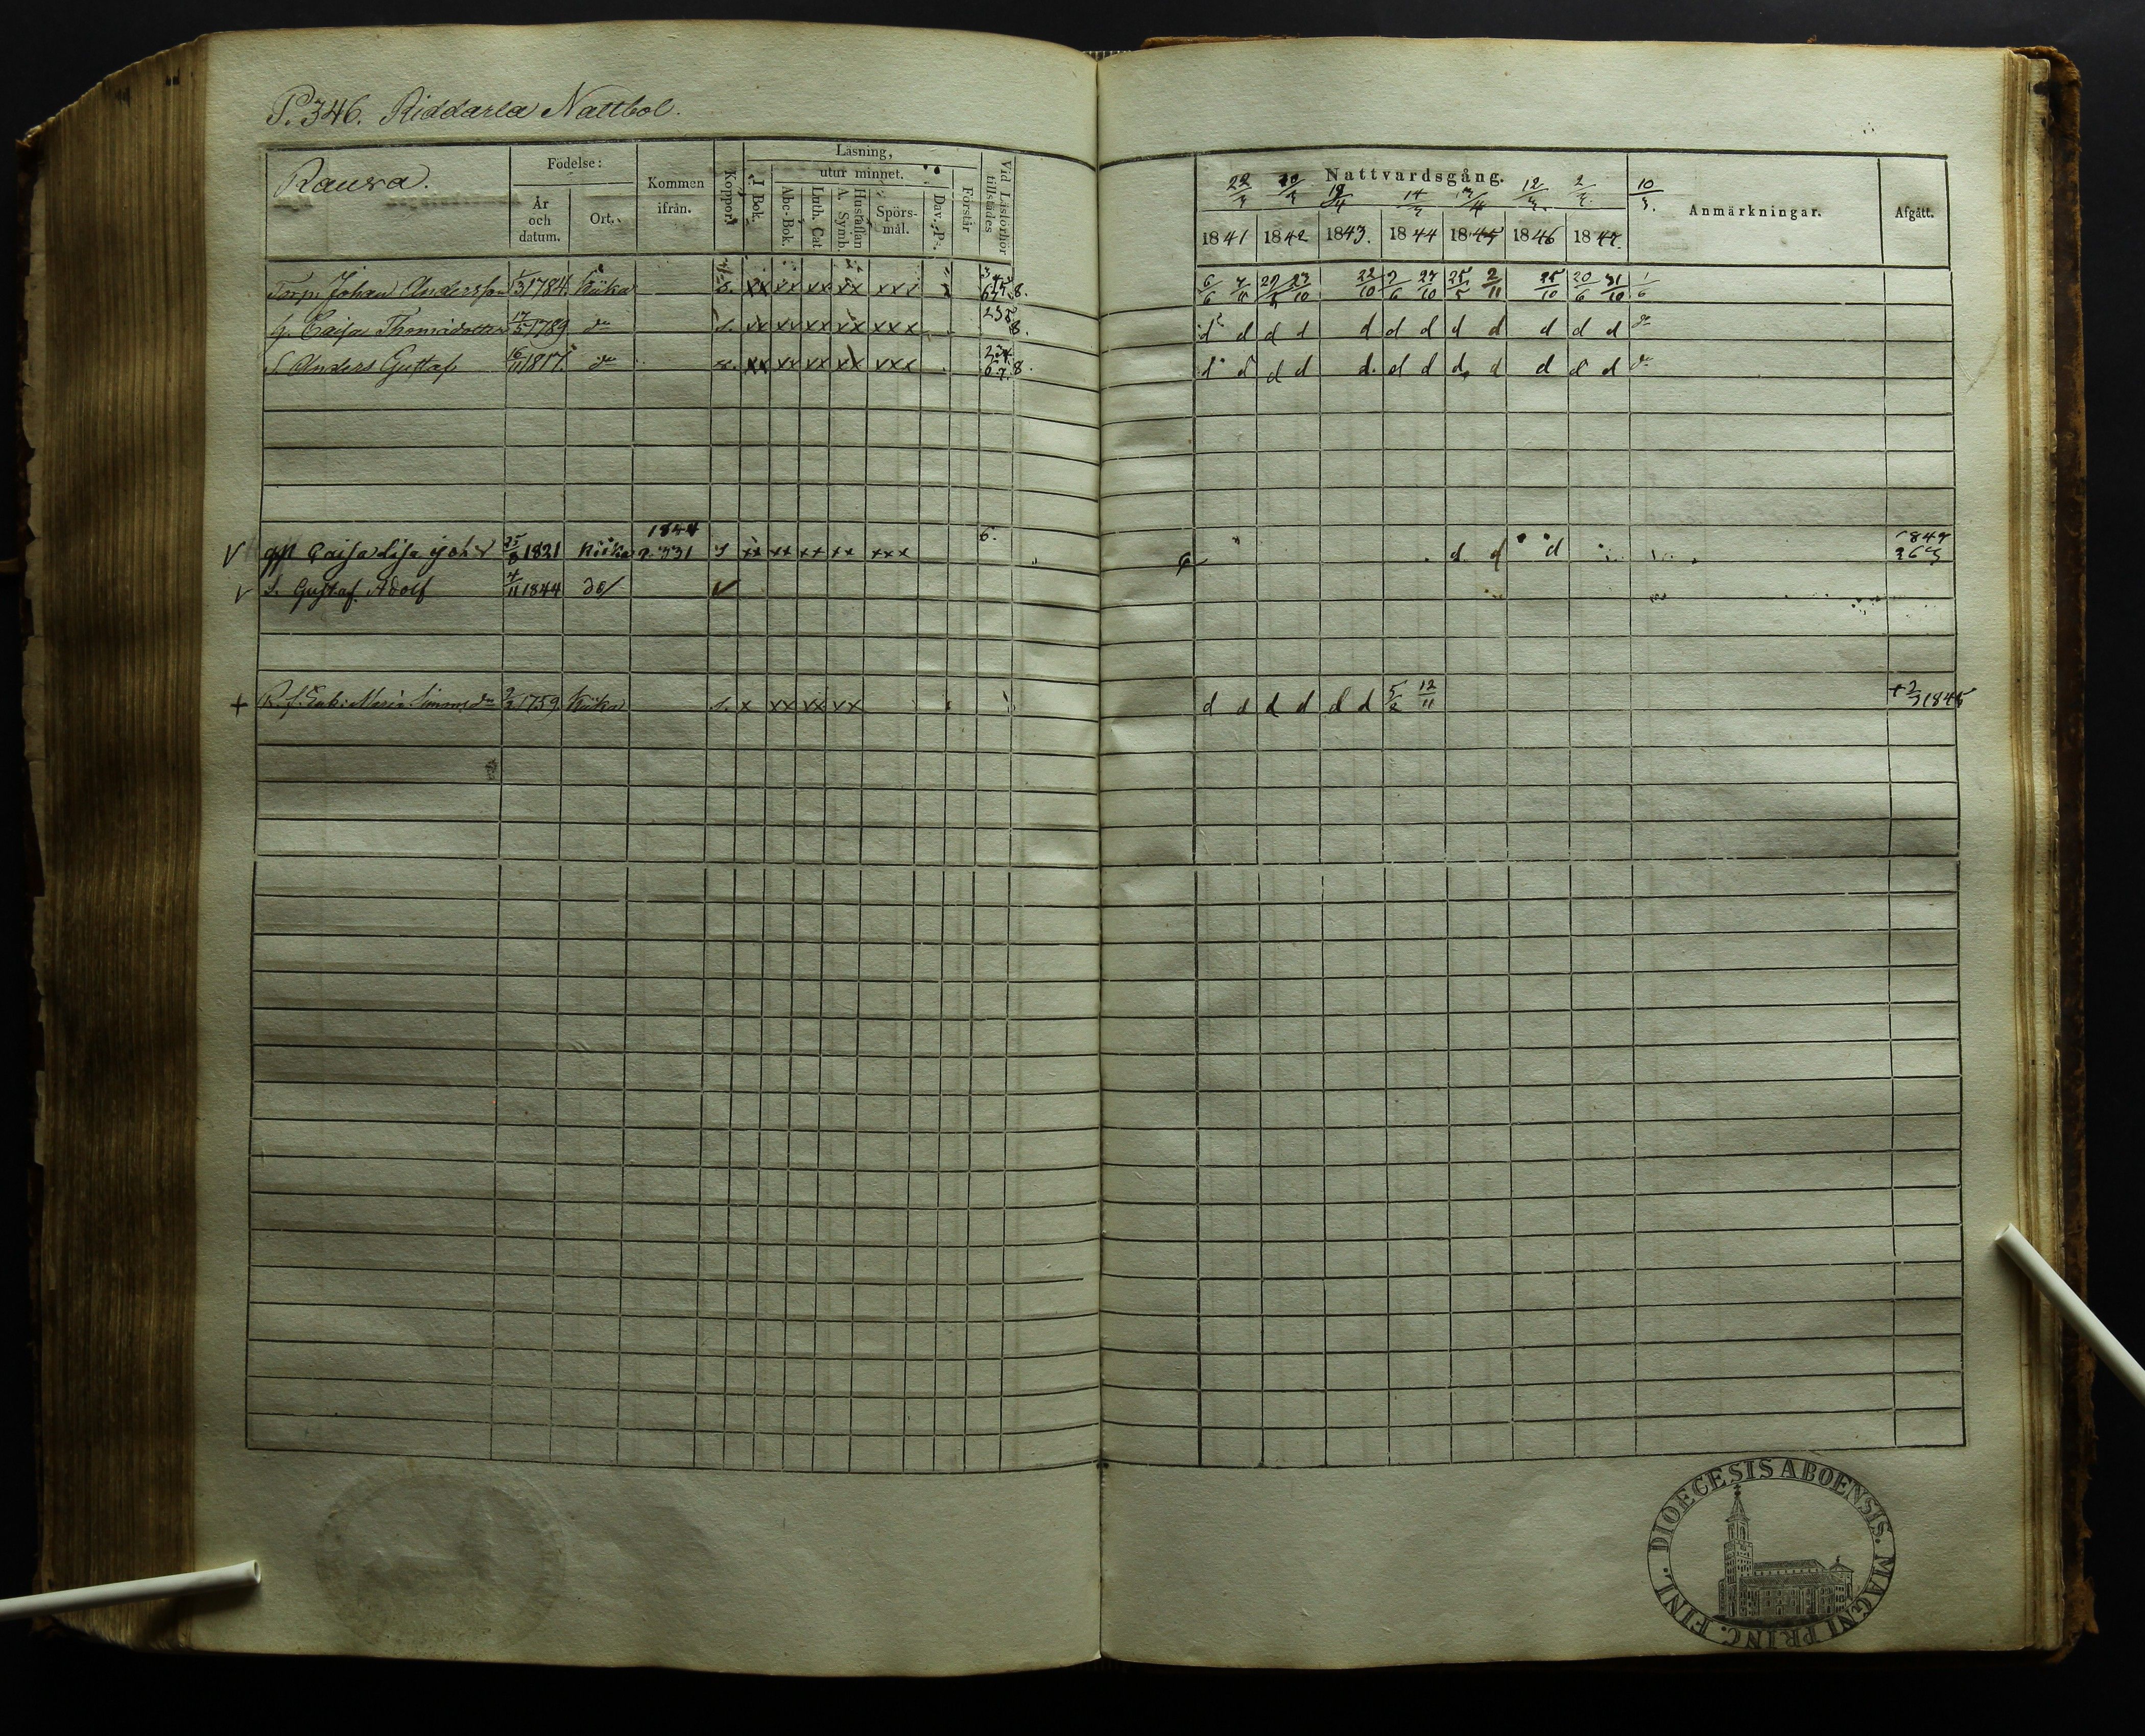 P. 346. Riddarla Nattbol.
Rauva.
Födelse:
År och datum.
Ort.
Kommen ifrån.
Koppor.
Läsning,
I Bok.
utur minnet.
Abc-Bok.
Luth. Cat.
Hustaflan A. Symb.
Spörsmål.
Dav. P:.
Förstår
Vid Läsförhör tillstädes
Nattvardsgång.
22/3 18/4 14/3 12/3 2/2 10/3.
1841 1842 1843. 1844 1845 1846 1847.
Anmärkningar.
Afgått.
Torp. Johan Andersson 1784. Kiika s. xx xx xx xx xxx 8. 6/6 7/11 29/5 23/10 22/10 2/6 27/10 25/5 2/11 25/10 20/6 31/10 1/6
h. Caisa Thomædotter 17/5 1789 do s. xx xx xx xx xxx 235 8. d d d d d d d d d d d d do
S. Anders Gustaf 16/11 1817. do s. xx xx xx xx xxx 234 6.7.8. d d d d d. d d d d d d d do
1844 6. 1847
Caisa Lisa Joh: d 25/8 1821 Kiika p. 331 s xx xx xx xx xxx d d d 363
S. Gustaf Adolf 4/11 1844 do/
+ Maria Simonsdr 2/2 1759 Kiika s. x xx xx xx d d d d d d 5/2 12/11 + 2/3 1845
DIOECESIS ABOENSIS. MAGNI PRINC. FINL.